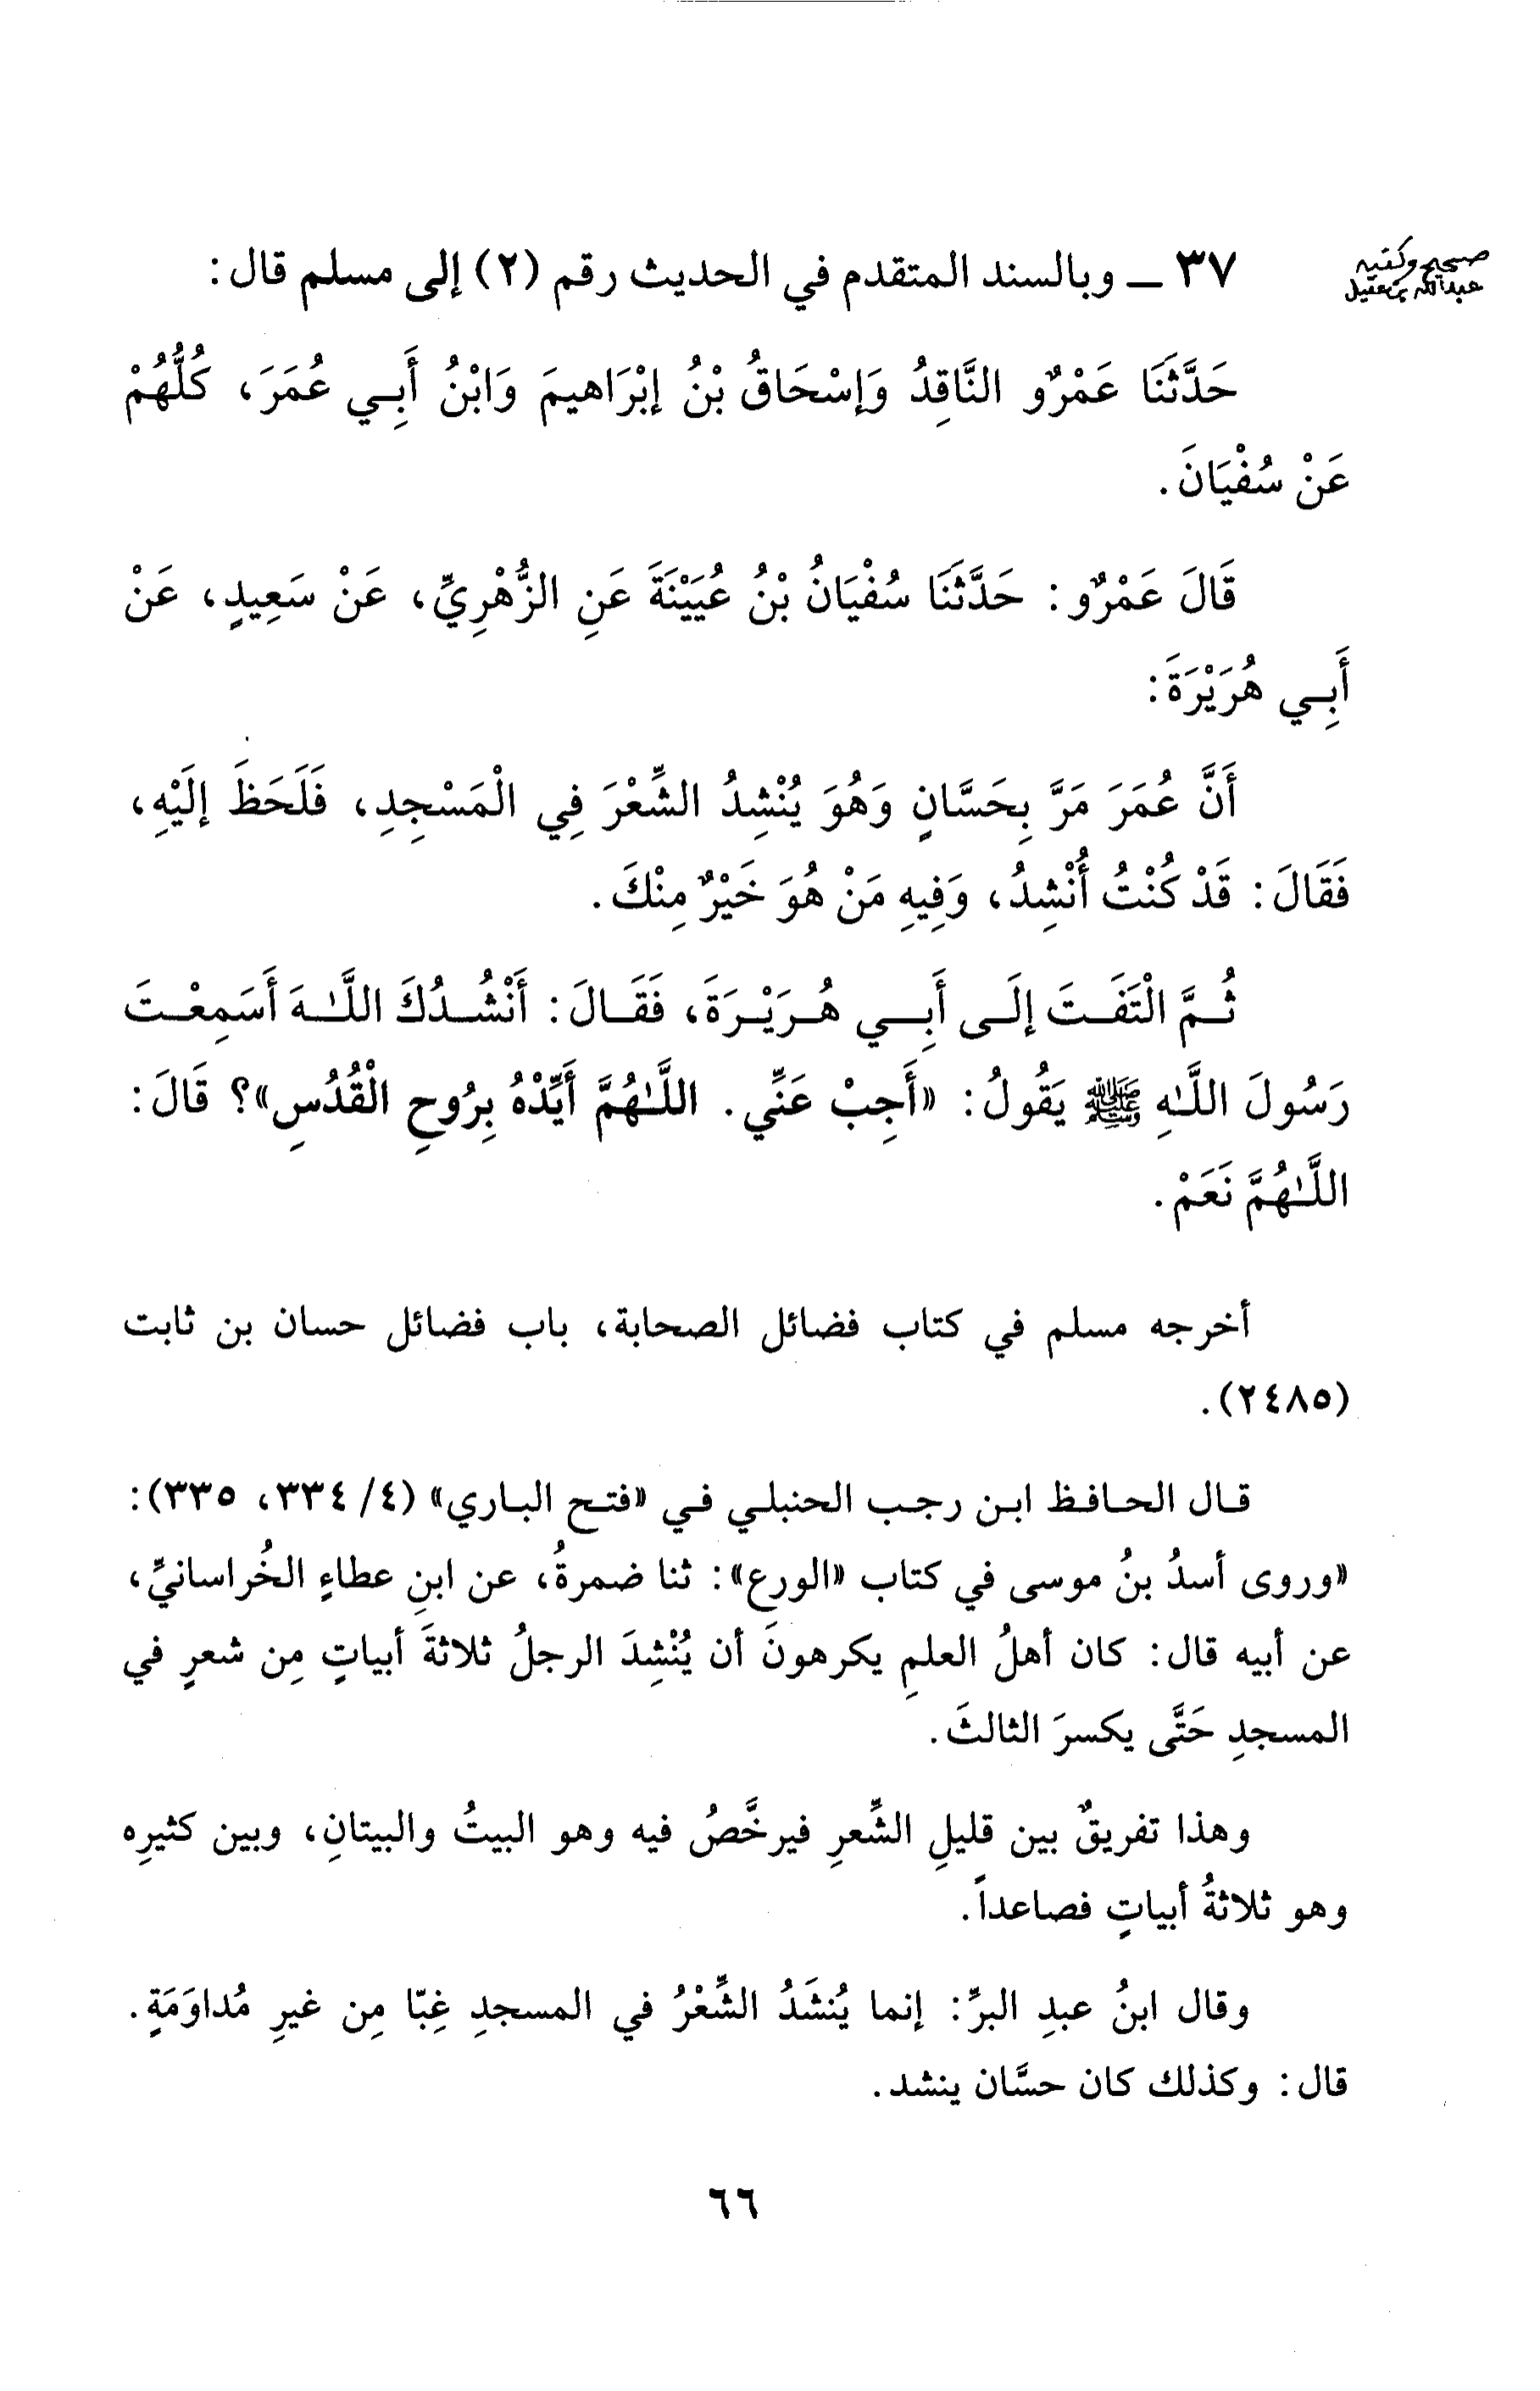 صحيح وكتبه
عبدالله بن عقيل
٣٧ ــ وبالسند المتقدم في الحديث رقم (٢) إلى مسلم قال:
حَدَّثَنَا عَمْرٌو النَّاقِدُ وَإِسْحَاقُ بْنُ إِبْرَاهيمَ وَابْنُ أَبِي عُمَرَ، كُلُّهُمْ
عَنْ سُفْيَانَ.
قَالَ عَمْرٌو: حَدَّثَنَا سُفْيَانُ بْنُ عُيَيْنَةَ عَنِ الزُّهْرِيِّ، عَنْ سَعِيدٍ، عَنْ
أَبِي هُرَيْرَةَ:
أَنَّ عُمَرَ مَرَّ بِحَسَّانٍ وَهُوَ يُنْشِدُ الشِّعْرَ فِي الْمَسْجِدِ، فَلَحَظَ إِلَيْهِ،
فَقَالَ: قَدْ كُنْتُ أُنْشِدُ، وَفِيهِ مَنْ هُوَ خَيْرٌ مِنْكَ.
ثُمَّ الْتَفَتَ إِلَى أَبِي هُرَيْرَةَ، فَقَالَ: أَنْشُدُكَ اللَّهَ أَسَمِعْتَ
رَسُولَ اللَّهِ ﷺ يَقُولُ: «أَجِبْ عَنِّي. اللَّهُمَّ أَيِّدْهُ بِرُوحِ الْقُدُسِ»؟ قَالَ:
اللَّهُمَّ نَعَمْ.
أخرجه مسلم في كتاب فضائل الصحابة، باب فضائل حسان بن ثابت
(٢٤٨٥).
قال الحافظ ابن رجب الحنبلي في «فتح الباري» (٤/ ٣٣٤، ٣٣٥):
«وروى أسدُ بنُ موسى في كتاب «الورع»: ثنا ضمرةُ، عن ابنِ عطاءٍ الخُراسانيِّ،
عن أبيه قال: كان أهلُ العلمِ يكرهونَ أن يُنْشِدَ الرجلُ ثلاثةَ أبياتٍ مِن شعرٍ في
المسجدِ حَتَّى يكسرَ الثالثَ.
وهذا تفريقٌ بين قليلِ الشِّعرِ فيرخَّصُ فيه وهو البيتُ والبيتانِ، وبين كثيرِه
وهو ثلاثةُ أبياتٍ فصاعداً.
وقال ابنُ عبدِ البرِّ: إنما يُنشَدُ الشِّعْرُ في المسجدِ غِبّا مِن غيرِ مُداوَمَةٍ.
قال: وكذلك كان حسَّان ينشد.
٦٦